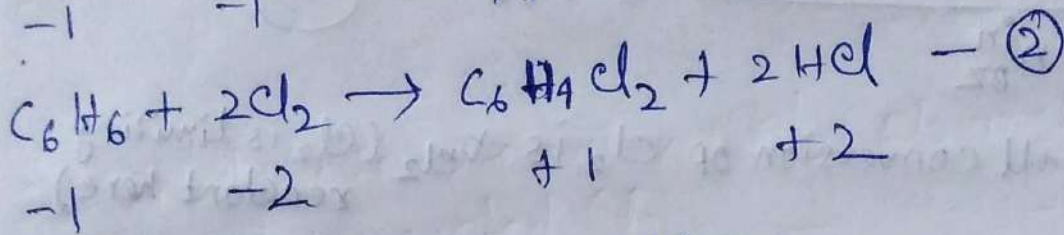 -1 -1
C6H6 + 2Cl2 → C6H4Cl2 + 2HCl - ②
-1 -2 +1 +2